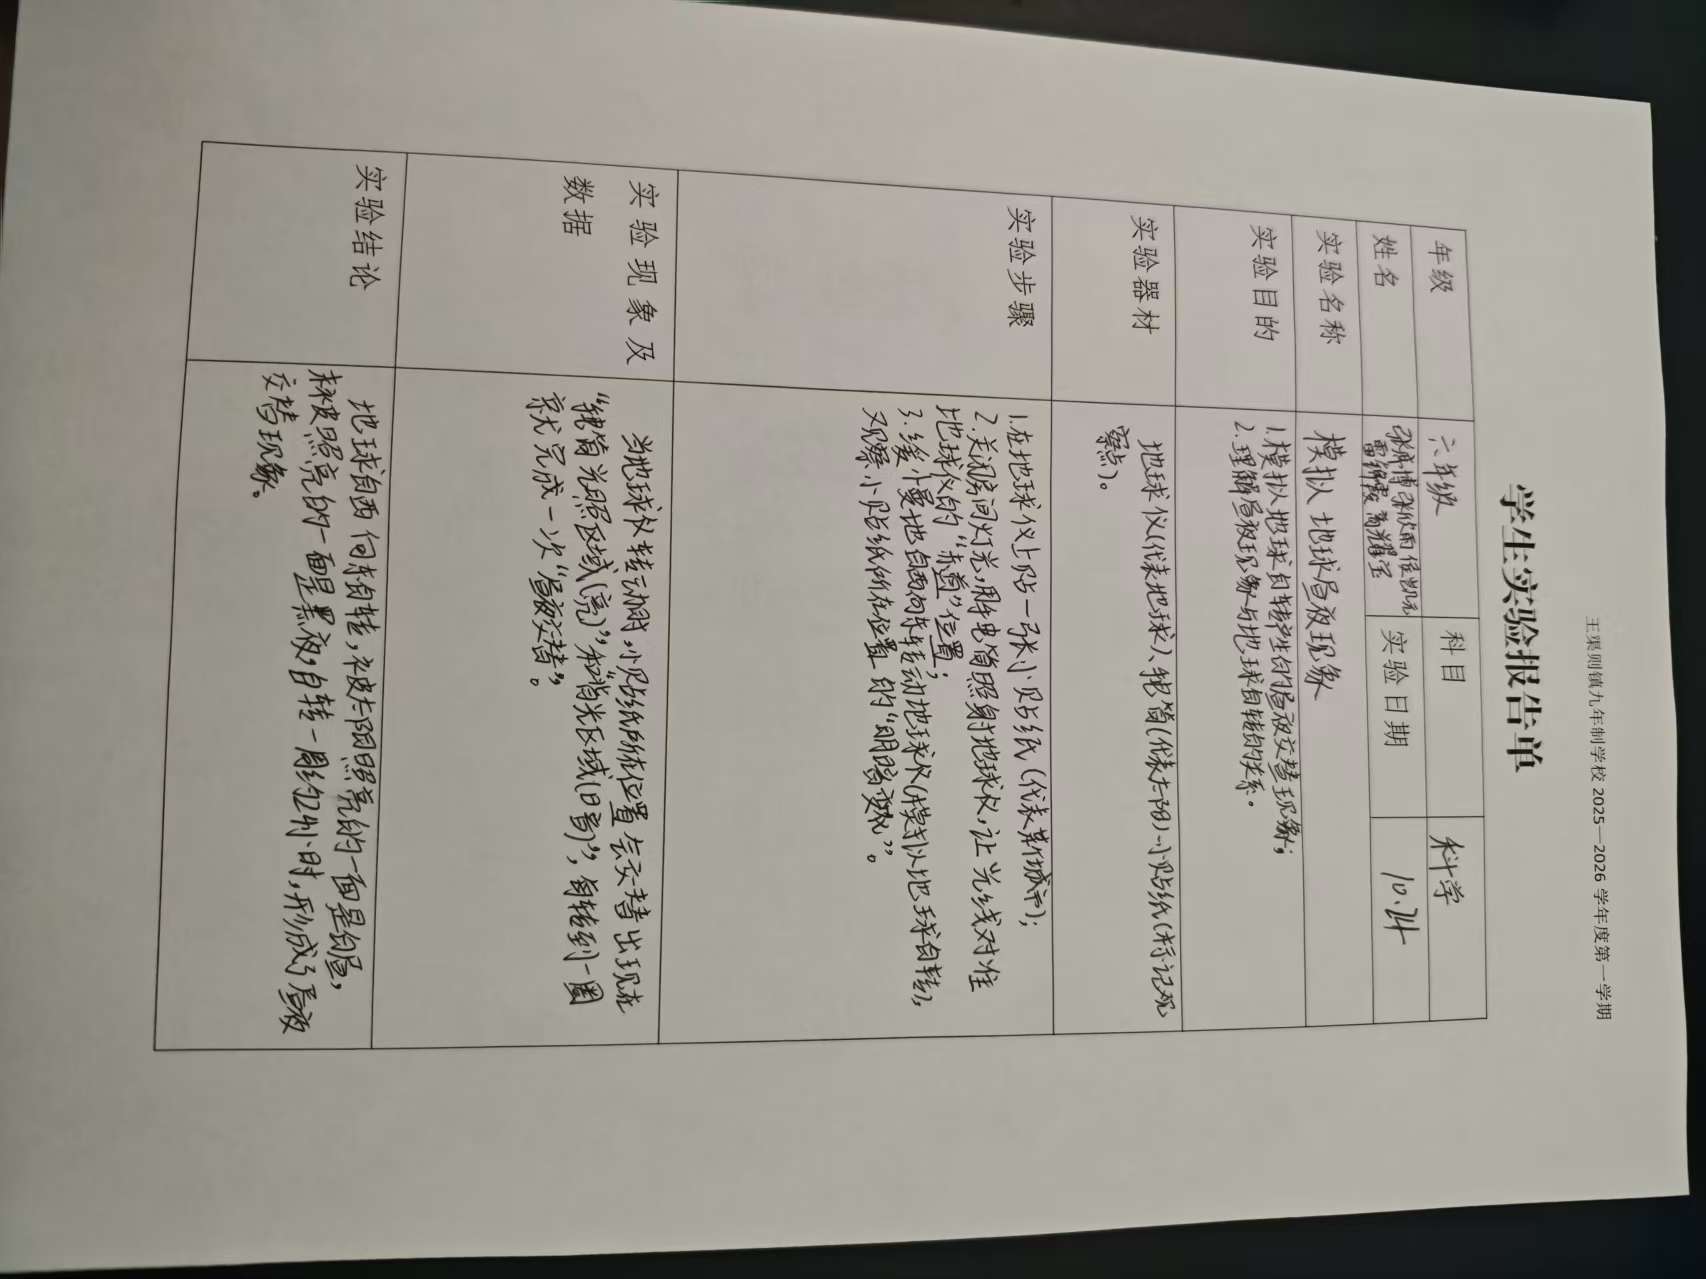 王渠则镇九年制学校 2025—2026 学年度第一学期
学生实验报告单
年级 六年级 科目 科学
姓名 张欣雨 侯凯元
高耀宝 实验日期 10.24
实验名称 模拟地球昼夜现象
实验目的 1.模拟地球自转产生的昼夜交替现象;
2.理解昼夜现象与地球自转的关系。
实验器材 地球仪(代表地球)、手电筒(代表太阳)、小贴纸(标记观
察点)。
实验步骤 1.在地球仪上贴一张小贴纸(代表某城市);
2.关闭房间灯光,用手电筒照射地球仪,让光线对准
地球仪的“赤道”位置;
3.缓慢地自西向东转动地球仪(模拟地球自转),
观察小贴纸所在位置的“明暗变化”。
实验现象及
数据 当地球仪转动时,小贴纸所在位置会交替出现在
“手电筒光照区域(亮)”和“背光区域(暗)”,每转到一圈
就完成一次“昼夜交替”。
实验结论 地球自西向东自转,被太阳照亮的一面是白昼,
未被照亮的一面是黑夜,自转一周约24小时,形成了昼夜
交替现象。